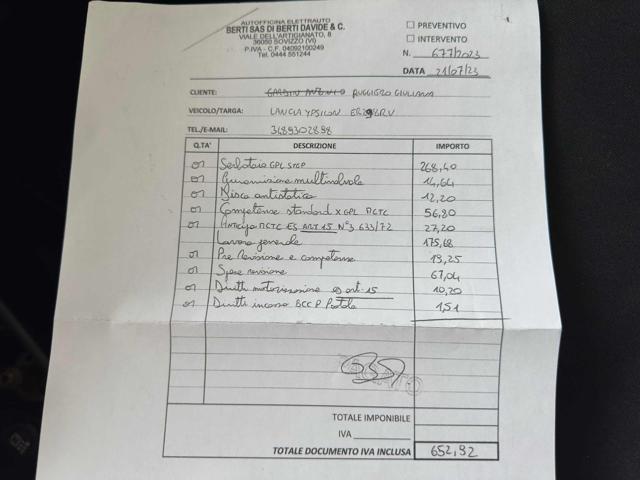 AUTOFFICINA ELETTRAUTO
BERTI SAS DI BERTI DAVIDE & C.
VIALE DELL'ARTIGIANATO, 86
36050 SOVIZZO (VI)
P.IVA - C.F. 04092100249
Tel. 0444 551244
PREVENTIVO
INTERVENTO
N. 677/2023
DATA 21/07/23
CLIENTE: RUGGIERO GIULIANA
VEICOLO/TARGA: LANCIA YPSILON
TEL./E-MAIL: 3489302898
Q.TA' DESCRIZIONE IMPORTO
01 Serbatoio GPL 268,40
01 Guarnizione multivalvola 14,64
01 Disco antistatico 12,20
01 Competenze standard x GPL MCTC 56,80
01 Anticipo MCTC ES ART 15 N°3 633/72 27,20
Lavoro generale 175,68
01 Pre Revisione e competenze 19,25
01 Spese revisione 67,04
01 Diritti motorizzazione es art. 15 10,20
01 Diritti incasso BCC P. Postale 1,51
PAGATO
TOTALE IMPONIBILE
IVA
TOTALE DOCUMENTO IVA INCLUSA 652,92